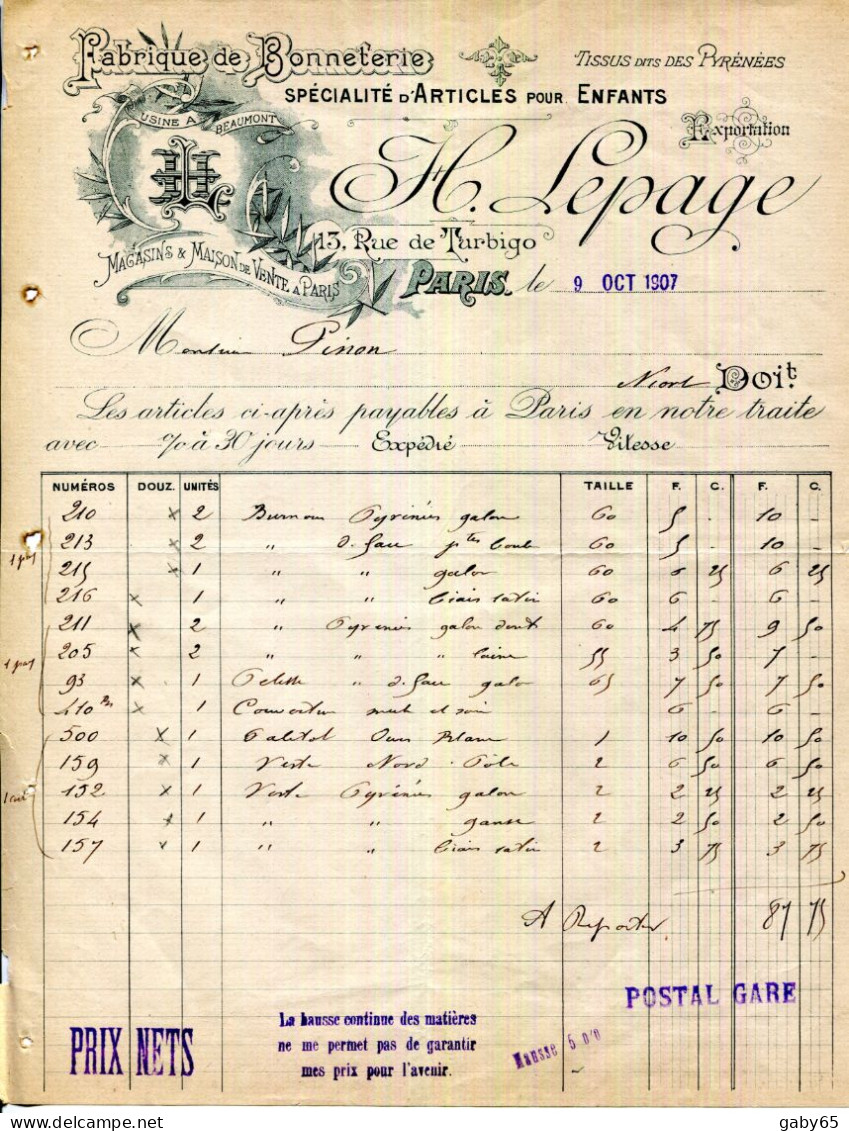 Fabrique de Bonneterie
TISSUS DITS DES PYRÉNÉES
SPÉCIALITÉ D'ARTICLES POUR ENFANTS
USINE A BEAUMONT
Exportation
H. Lepage
13, Rue de Turbigo
MAGASINS & MAISON DE VENTE A PARIS
PARIS, le 9 OCT 1907
Monsieur Pinon
Niort Doit
Les articles ci-après payables à Paris en notre traite
avec % à 30 jours Expédié Vitesse
NUMÉROS DOUZ. UNITÉS TAILLE F. C. F. C.
210 x 2 Burnous Pyrénées galon 60 5 . 10 -
213 x 2 " d. face ptes boule 60 5 - 10 -
215 x 1 " " galon 60 6 25 6 25
216 x 1 " " biais satin 60 6 - 6 -
211 x 2 " Pyrénées galon dent 60 4 75 9 50
205 x 2 " " " laine 55 3 50 7 -
93 x 1 Pelisse " d. face galon 65 7 50 7 50
410 Bis x 1 Couverture et soie 6 - 6 -
500 x 1 Paletot Ours Blanc 1 10 50 10 50
159 x 1 Veste Nord-Pôle 2 6 50 6 50
152 x 1 Veste Pyrénées galon 2 2 25 2 25
154 x 1 " " ganse 2 2 50 2 50
157 x 1 " " biais satin 2 3 75 3 75
A Reporter 87 75
POSTAL GARE
PRIX NETS
La hausse continue des matières
ne me permet pas de garantir
mes prix pour l'avenir.
Hausse 5 0/0
gaby65